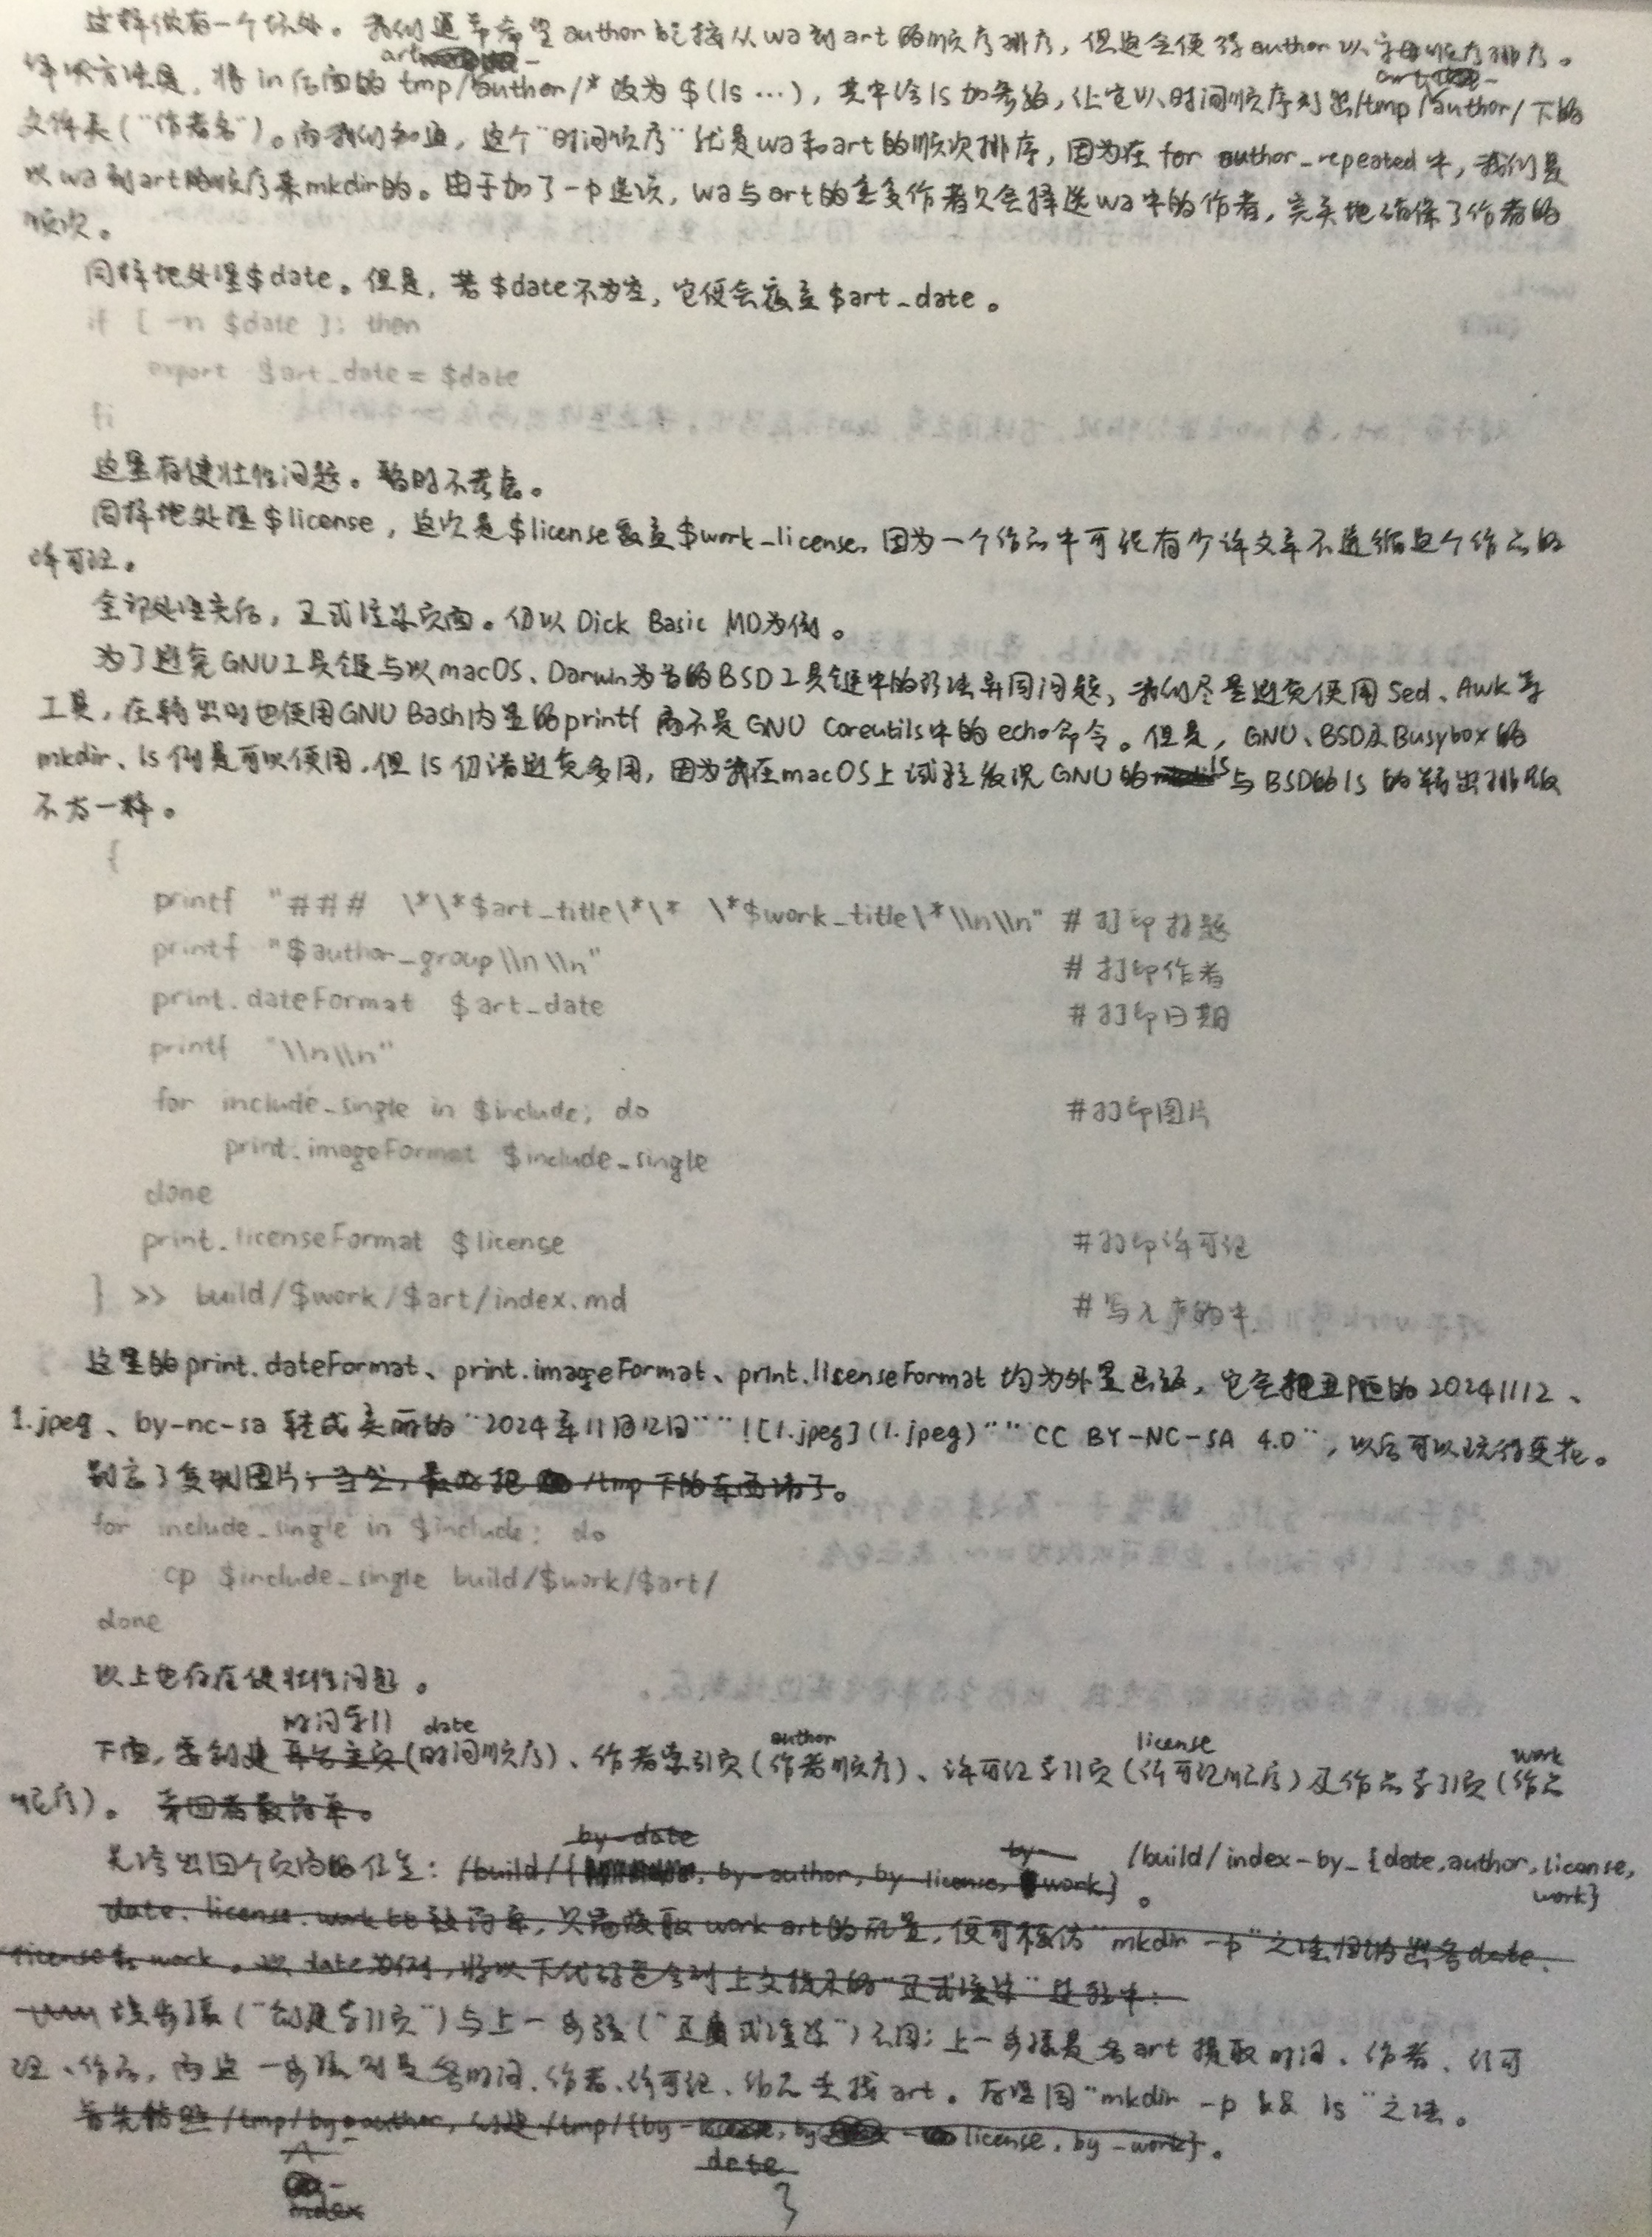 这样做有一个坏处。我们通常希望author能按从wa到art的顺序排序，但这会使得author以字母顺序排序。
解决方法是，将in后面的tmp/art-author/*改为$(ls …)，其中给ls加参数，让它以时间顺序列出/tmp/art-author/下的
文件夹("作者名")。而我们知道，这个"时间顺序"就是wa和art的顺次排序，因为在for author_repeated中，我们是
以wa到art的顺序来mkdir的。由于加了-p选项，wa与art的重复作者只会择选wa中的作者，完美地确保了作者的
顺次。
同样地处理$date。但是，若$date不为空，它便会覆盖$art_date。
if [ -n $date ]; then
export $art_date = $date
fi
这里有健壮性问题。暂时不考虑。
同样地处理$license，这次是$license覆盖$work_license。因为一个作品中可能有少许文章不遵循这个作品的
许可证。
全部处理完后，正式渲染页面。仍以Dick Basic MD为例。
为了避免GNU工具链与以macOS、Darwin为首的BSD工具链中的语法异同问题，我们尽量避免使用Sed、Awk等
工具，在输出时也使用GNU Bash内置的printf而不是GNU Coreutils中的echo命令。但是，GNU、BSD及Busybox的
mkdir、ls倒是可以使用，但ls仍请避免多用，因为我在macOS上试验发现GNU的ls与BSD的ls的输出排版
不太一样。
{
printf "### \*\*$art_title\*\* \*$work_title\*\\n\\n" #打印标题
printf "$author_group\\n\\n" #打印作者
print.dateFormat $art_date #打印日期
printf "\\n\\n"
for include_single in $include; do #打印图片
print.imageFormat $include_single
done
print.licenseFormat $license #打印许可证
} >> build/$work/$art/index.md #写入
这里的print.dateFormat、print.imageFormat、print.licenseFormat均为外置函数，它会把丑陋的20241112、
1.jpeg、by-nc-sa转成美丽的"2024年11月12日""![1.jpeg](1.jpeg)""CC BY-NC-SA 4.0"，以后可以玩得更花。
别忘了复制图片，当然，最后把/tmp下的东西清了。
for include_single in $include; do
cp $include_single build/$work/$art/
done
以上也存在健壮性问题。
时间索引 date
下面，需创建(时间顺序)、作者索引页(author作者顺序)、许可证索引页(license许可证顺序)及作品索引页(work作品
顺序)。第四者最简单。
by-date
先给出四个页面的位置：/build/{, by-author, by-license, by-work}。/build/index-by_{date,author,license,
work}
date、license、work较简单，只需读取work art的配置，便可模仿"mkdir -p"之法归纳出各date、
license与work。以date为例，将以下代码包含到上文提及的"正式渲染"过程中：
该步骤("创建索引页")与上一步骤("正式渲染")不同：上一步骤是各art提取时间、作者、许可
证、作品，而这一步骤则是各时间、作者、许可证、作品去找art。应活用"mkdir -p && ls"之法。
首先仿照/tmp/by-author，创建/tmp/{by-date, by-license, by-work}。
index
}